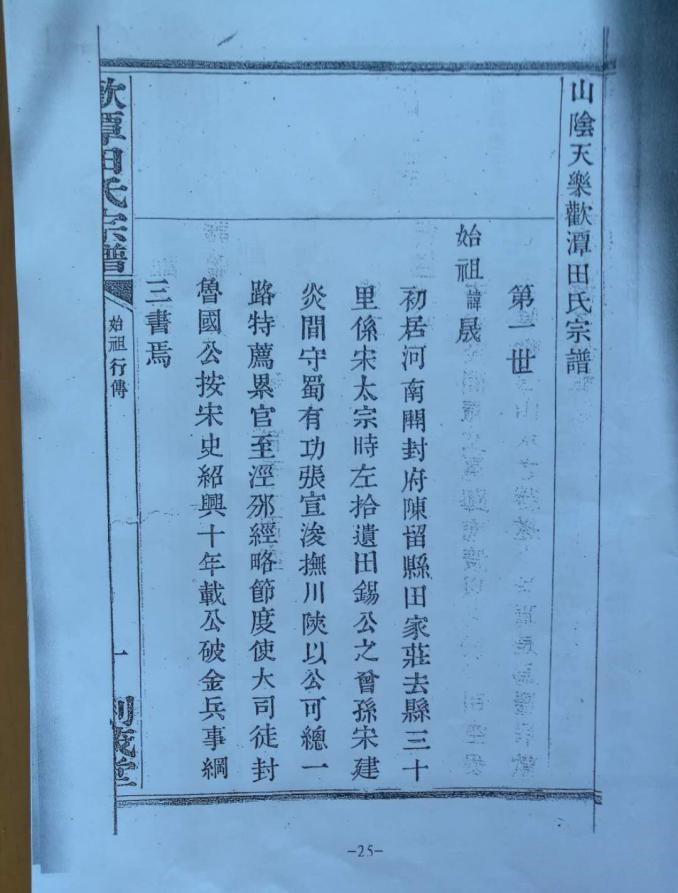 山陰天樂歡潭田氏宗譜
第一世
始祖諱晟
初居河南開封府陳留縣田家莊去縣三十
里係宋太宗時左拾遺田錫公之曾孫宋建
炎間守蜀有功張宣浚撫川陝以公可總一
路特薦累官至涇邠經略節度使大司徒封
魯國公按宋史紹興十年載公破金兵事綱
三書焉
歡潭田氏宗譜
始祖行傳
一
-25-